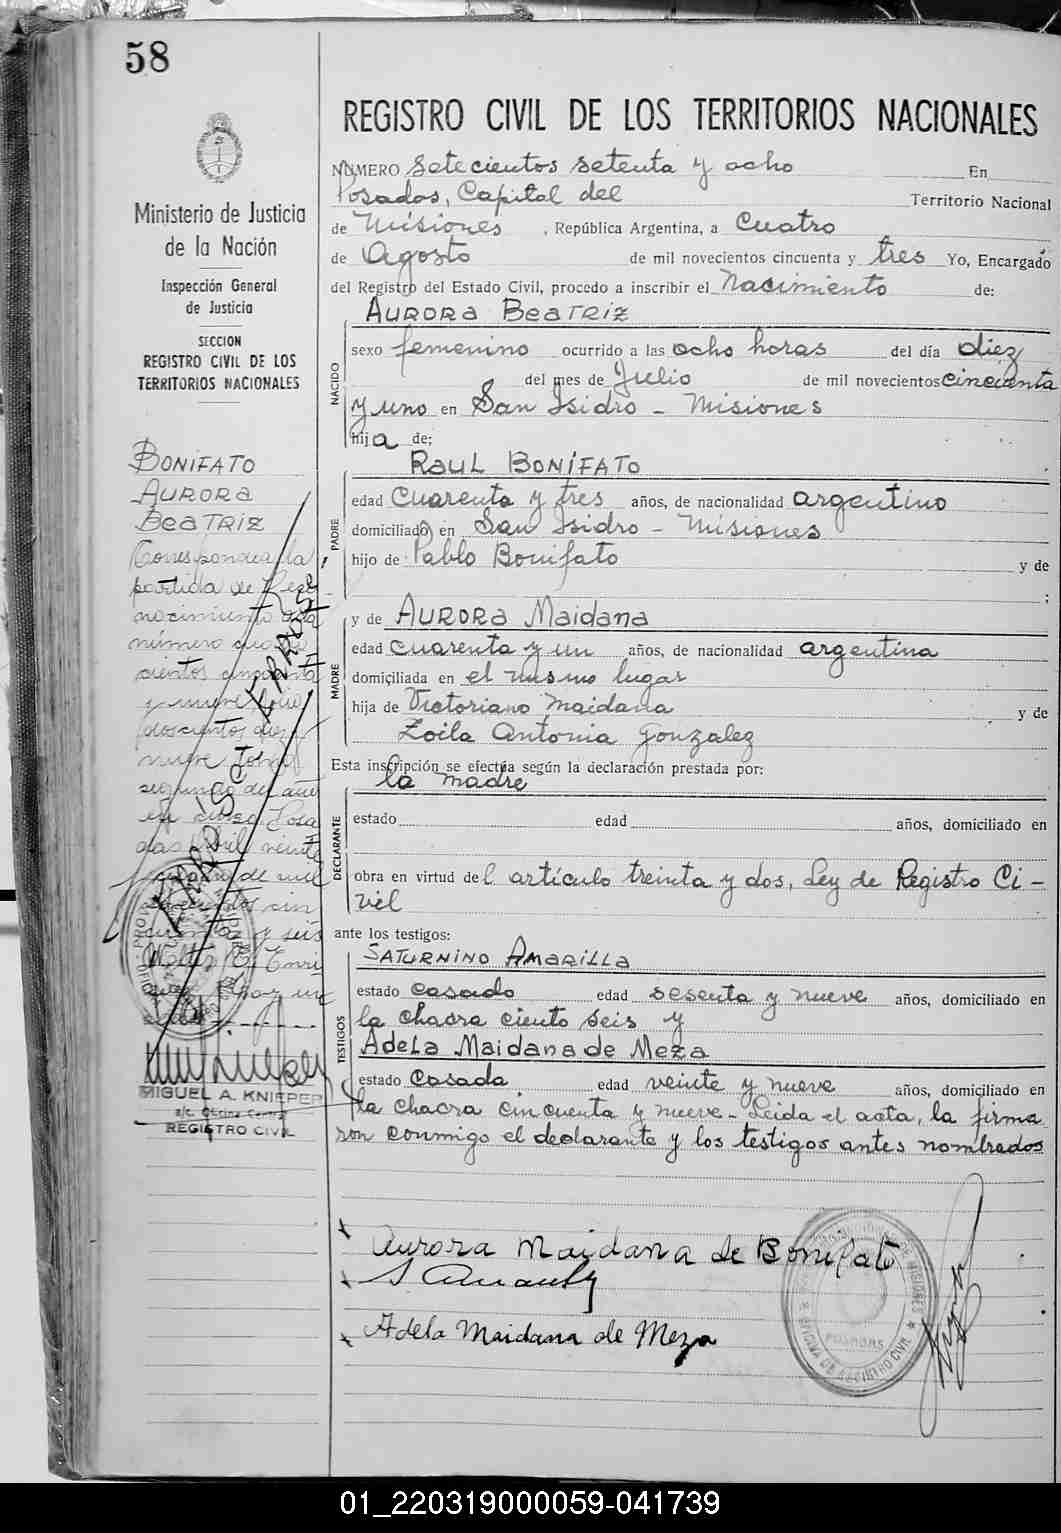 58
REGISTRO CIVIL DE LOS TERRITORIOS NACIONALES
Ministerio de Justicia
de la Nación
Inspección General
de Justicia
SECCION
REGISTRO CIVIL DE LOS
TERRITORIOS NACIONALES
NÚMERO Setecientos setenta y ocho En
Posadas, Capital del Territorio Nacional
de Misiones, República Argentina, a Cuatro
de Agosto de mil novecientos cincuenta y tres Yo, Encargado
del Registro del Estado Civil, procedo a inscribir el Nacimiento de:
AURORA BEATRIZ
NACIDO
sexo femenino ocurrido a las ocho horas del día diez
del mes de Julio de mil novecientos cincuenta
y uno en San Isidro - Misiones
hija de;
RAUL BONIFATO
PADRE
edad cuarenta y tres años, de nacionalidad argentino
domiciliado en San Isidro - Misiones
hijo de Pablo Bonifato y de
;
y de AURORA Maidana
MADRE
edad cuarenta y un años, de nacionalidad argentina
domiciliada en el mismo lugar
hija de Victoriano Maidana y de
Zoila Antonia Gonzalez
Esta inscripción se efectúa según la declaración prestada por:
la madre
DECLARANTE
estado edad años, domiciliado en
obra en virtud del artículo treinta y dos, Ley de Registro Ci-
vil
ante los testigos:
SATURNINO AMARILLA
TESTIGOS
estado casado edad sesenta y nueve años, domiciliado en
la chacra ciento seis y
Adela Maidana de Meza
estado Casada edad veinte y nueve años, domiciliado en
la chacra cincuenta y nueve - Leida el acta, la firma
ron conmigo el declarante y los testigos antes nombrados
BONIFATO
AURORA
BEATRIZ
Corresponde a la
partida de
nacimiento
número
cientos cincuenta
y nueve folio
doscientos diez
nueve tomo
segundo del año
Posa
das Abril veinte
de mil
cin
y seis
MIGUEL A. KNIEPER
a/c. Oficina Central
REGISTRO CIVIL
Aurora Maidana de Bonifato
Adela Maidana de Meza
OFICINA DE REGISTRO CIVIL
POSADAS
01_220319000059-041739